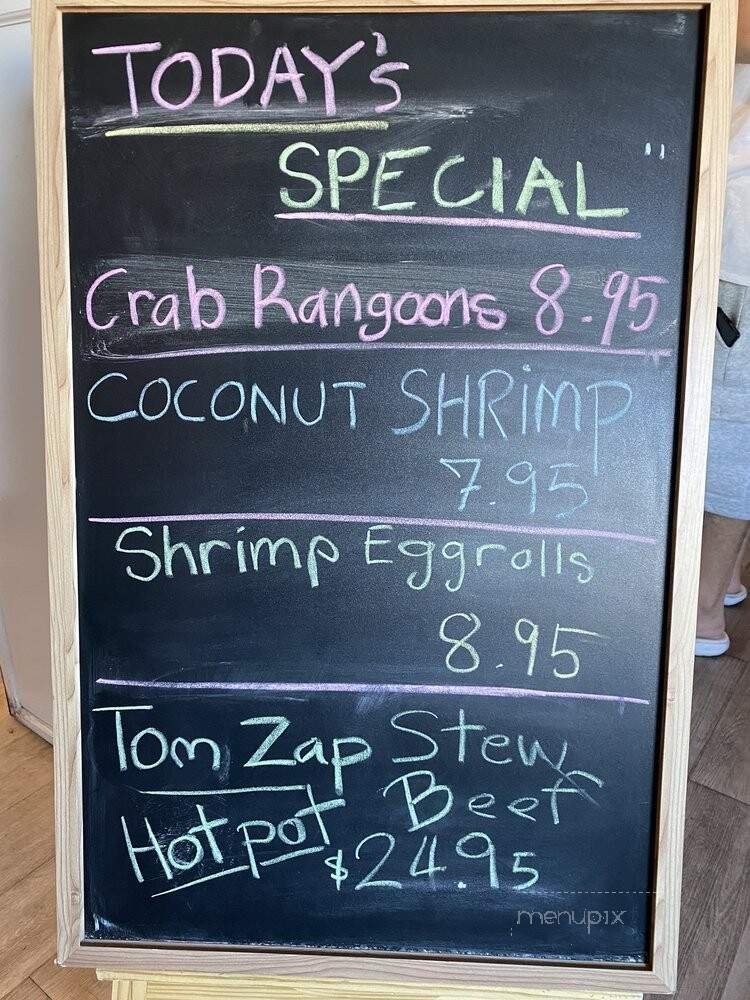 TODAY's
SPECIAL "
Crab Rangoons 8.95
COCONUT SHRiMP
7.95
Shrimp Eggrolls
8.95
Tom Zap Stew
Hot pot Beef
$24.95
menupix